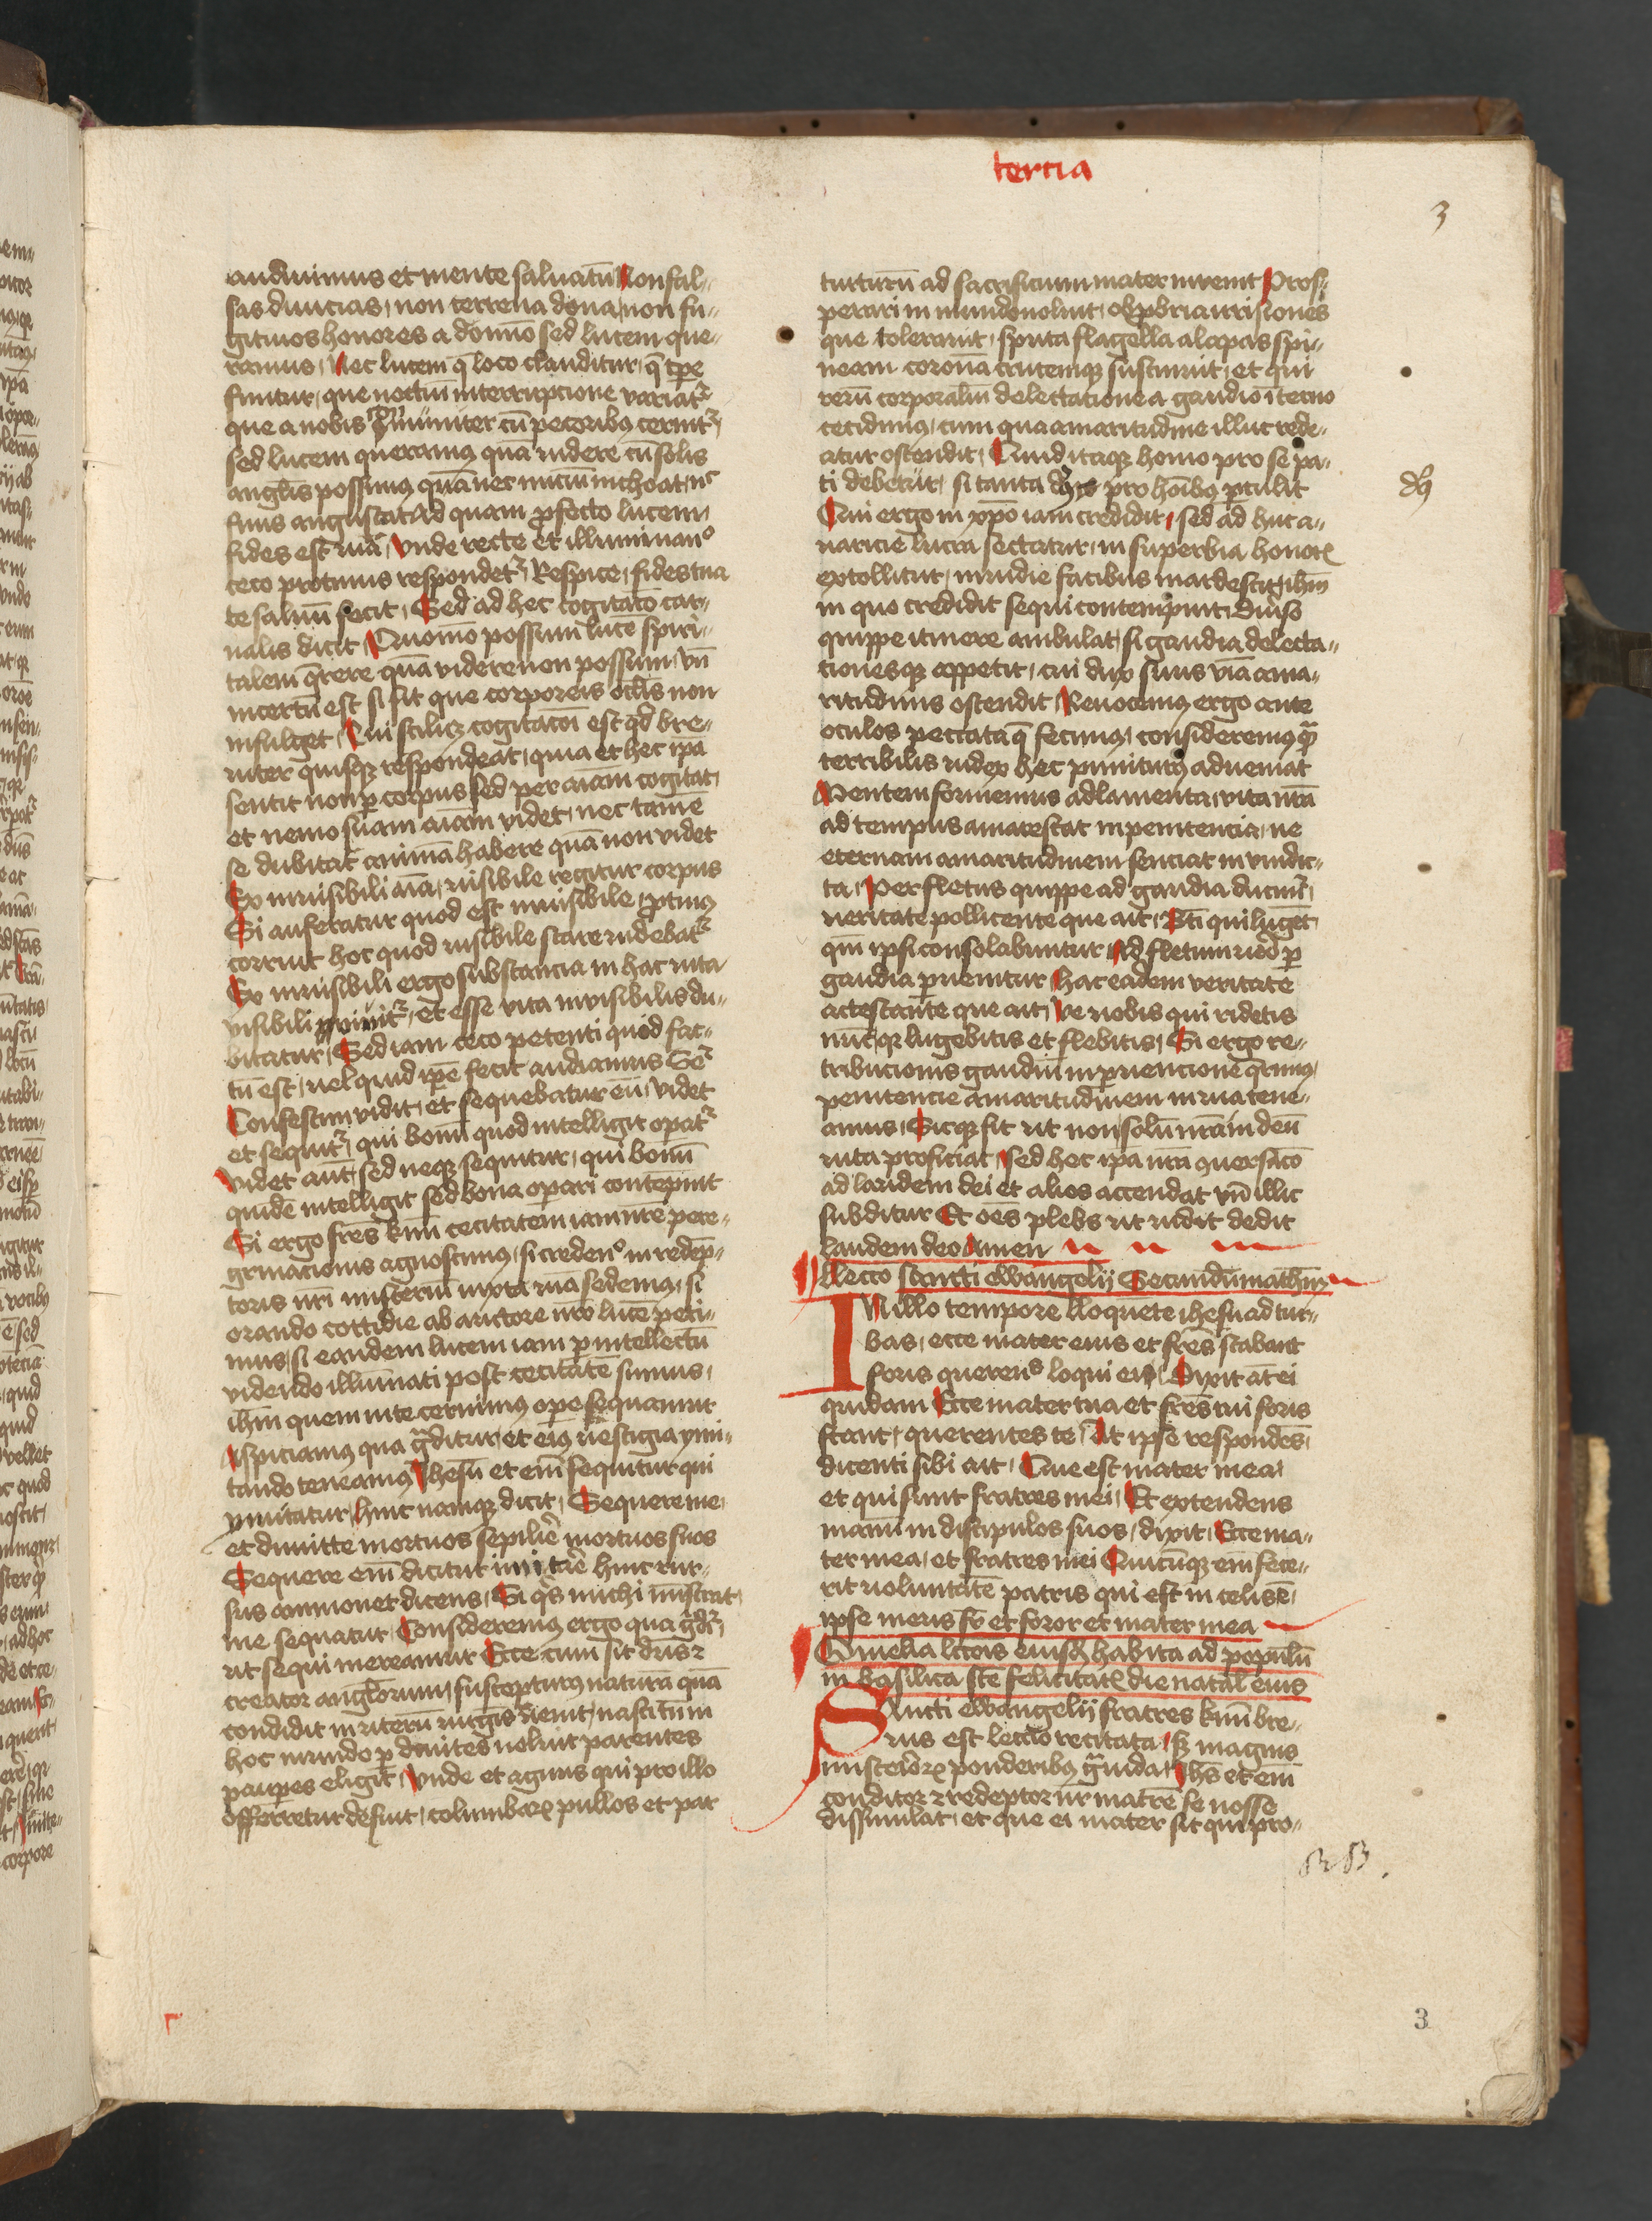 tercia
3
audiuimus et mente saluatū Non fal-
sas diuicias, non terrena dona, non fu-
gitiuos honores a domino sed lucem que-
ramus, Nec lucem q̄ loco clauditur, q̄ tp̄e
finitur, que noctiū interrupcione variatr
que a nobis 9muniter cū pecoribꝰ cernitr
sed lucem queramꝰ quā videre cū solis
angl̄is possimꝰ quā nec iniciū inchoat, nc
finis angustat Ad quam profecto lucem
fides est via, Vnde recte et illuminando
ceco protinus respondetr, Respice, fides tua
te saluū fecit, Sed ad hec cogitacō car-
nalis dicit, Quomō possum lucē spiri-
talem q̄rere quā videre non possum, vn̄
incertū est si sit que corporeis oclis non
infulget, Cui scilicꝫ cogitacōi est qd bre-
uiter quisqꝫ respondeat, quia et hec ip̄a
sentit non ꝑ corpus sed per aiam cogitat
et nemo suam aiam videt, nec tamē
se dubitat animā habere quā non videt
Ex inuisibili aia, visibile regitur corpus
Si auferatur quod est inuisibile, ꝓtinꝰ
corruit hoc quod visibile stare videbatr
Ex inuisibili ergo substancia in hac vita
visibili viuitr, et esse vita invisibilis du-
bitatur, Sed iam ceco petenti quid fac-
tū est, uel quid ip̄e fecit audiamus Setr
Confestim vidit, et sequebatur eū, videt
et sequitr, qui bonū quod intelligit opatr
Videt aūt, sed neqꝫ sequitur, qui bonū
quidē intelligit sed bona operari contēpnit
Si ergo fr̄es kmi cecitatem iam nr̄e pere-
grinacionis agnoscimꝰ, si credendo in redēp-
toris nr̄i misteriū iuxta viā sedemꝰ, si
orando cottidie ab auctore nr̄o lucē peti-
mus, si eandem lucem iam ꝑ intellectū
videndo illūinati post cecitatē sumus,
ihm̄ quem mte cernimꝰ ope sequamur
Aspiciamꝰ qua gditur, et eiꝰ uestigia ymi-
tando teneamꝰ Ihesū et enī sequitur qui
ymitatur, hinc namqꝫ dicit, Sequere me,
et dimitte mortuos sepelire mortuos suos
Sequere enī dicitur imitare hinc rur-
sus ammonet dicens, Si qs michi mīstrat
me sequatur, Consideremꝰ ergo qua gditr
ut sequi mereamur Ecce cum sit dn̄s 2
creator anglorum, suscepturꝰ naturā quā
condidit in uterū virgīs uenit, nasci tn̄ in
hoc mundo ꝑ diuites noluit parentes
pauꝑes eligit, Vnde et agnus qui pro illo
offerretur defuit, columbarꝫ pullos et par
turturū ad sacrificium mater inuenit Pros-
perari in mundo noluit, obprobria irrisiones
que tolerauit, sputa flagella alapas spi-
neam coronā crucemqꝫ sustinuit, et qui
rerū corporaliū delectatione a gaudio īterno
cecidimus, cum qua amaritudine illuc rede-
atur ostendit, Quid itaqꝫ homo pro se pa-
ti debet, si tanta dꝰ pro hoībꝰ ꝑtulit
dꝰ
Qui ergo in xpō iam credidit, sed ad huc a-
varicie lucra sectatur, in superbia honorꝫ
extollitur, inuidie facibus inardescit, ihm̄
in quo credidit sequi contempnit, diuiso
quippe itinere ambulat, si gaudia delecta-
tionesqꝫ appetit, cui dux suus viā ama-
ritudinis ostendit, Reuocemꝰ ergo ante
oculos peccata q̄ fecimus, consideremꝰ qm
terribilis iudex hec puniturꝰ adueniat
Mentem formemus ad lamenta, vita nr̄a
ad tempus amarescat in penitencia, ne
eternam amaritudinem senciat in vindic-
ta, Per fletus quippe ad gaudia ducimr,
veritate pollicente que ait, Bti qui lugēt
qm̄ ipsi consolabuntur, Ad fletum uero ꝑ
gaudia ꝑuenitur hac eadem veritate
actestante que ait, Ve uobis qui ridetis
nūc, qꝫ lugebitis et flebitis, Si ergo re-
tribucionis gaudiū in ꝑuencione q̄rimꝰ,
penitencie amaritudinem in via tene-
amus, Sicqꝫ fit ut non solū nr̄a in deū
vita proficiat, sed hec ip̄a nr̄a 9uersacō
ad laudem dei et alios accendat vn̄ illic
subditur Et oēs plebs ut vidit dedit
laudem deo Amen
Leccō sancti ewangelij Secundū mathm̄
IN illo tempore Loquēte ihesu ad tur-
bas, ecce mater eius et fr̄es stabant
foris querentes loqui ei, Dixit āt ei
quidam Ecce mater tua et fr̄es tui foris
stant, querentes te, At ipse respondēs
dicenti sibi ait, Que est mater mea
et qui sunt fratres mei, Et extendens
manū in discipulos suos, dixit, Ecce ma-
ter mea, et fratres mei Quicūqꝫ enī fece-
rit voluntatē patris qui est in celis ē,
ipse meus fr̄ et soror et mater mea
Omelia lcōis eiusd habita ad populū
in basilica scē felicitatꝫ die natal eius
Sancti ewangelij fratres kmi bre-
uis est leccō recitata, sꝫ magnis
misteriorꝫ ponderibꝰ gvida, Ihs et enī
conditor 2 redēptor nr̄ matrē se nosse
dissimulat, et que ei mater sit qui pro-
3